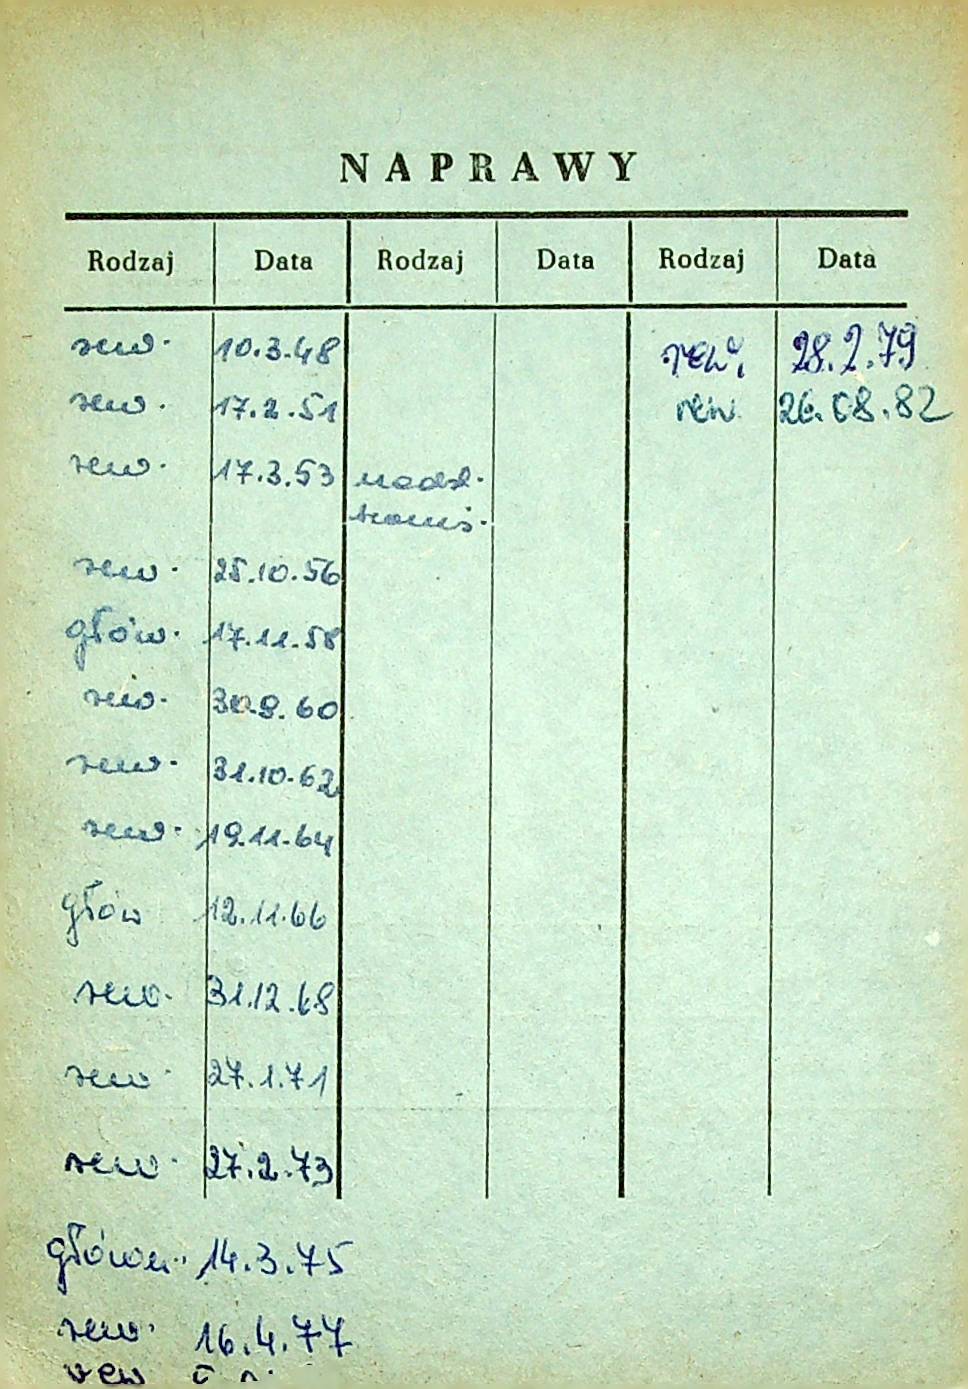 NAPRAWY
Rodzaj Data Rodzaj Data Rodzaj Data
rew. 10.3.48 rew. 28.2.79
rew. 17.2.51 rew. 26.08.82
rew. 17.3.53 nadzl.
rew. 25.10.56
głów. 17.11.58
rew. 30.9.60
rew. 31.10.62
rew. 19.11.64
głów 12.11.66
rew. 31.12.68
rew. 27.1.71
rew. 27.2.73
główn. 14.3.75
rew. 16.4.77
rew